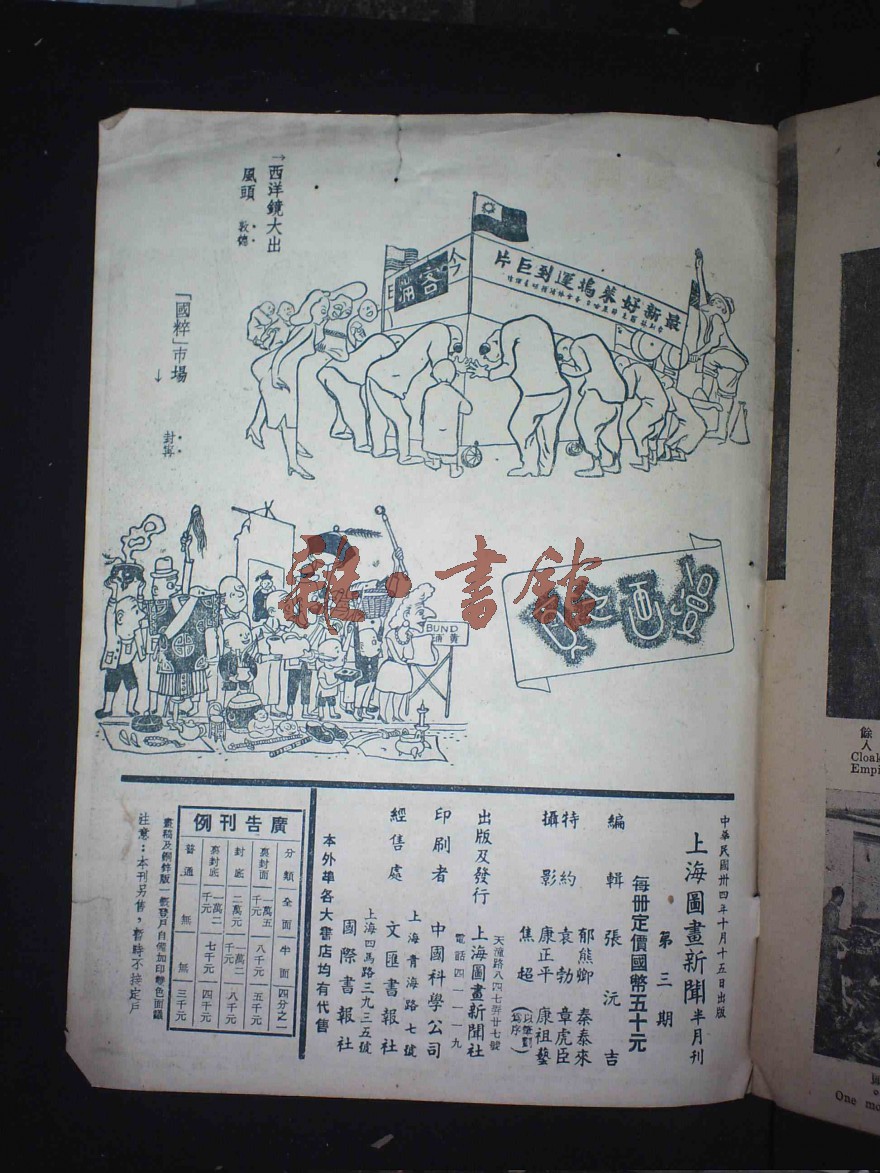 →西洋鏡大出
風頭
「國粹」市場
↓
封寧
最新好萊塢運到巨片
今
雜·書館
BUND
黃浦
中華民國卅四年十月十五日出版
上海圖畫新聞 半月刊
第三期
每册定價國幣五十元
編輯 張沅吉
特約攝影
郁熊卿 秦泰來
袁勃 章虎臣
康正平 康祖藝
焦超 (以筆劃為序)
出版及發行 上海圖畫新聞社
天潼路八四七弄廿七號
電話四一一一九
印刷者 中國科學公司
上海青海路七號
經售處 文匯書報社
上海四馬路三九三五號
國際書報社
本外埠各大書店均有代售
廣告刊例
分類 全面 半面 四分之一
裏封面 一萬五千元 八千元 五千元
封底 二萬元 一萬二千元 八千元
裏封底 一萬二千元 七千元 四千元
普通 無 無 三千元
畫稿及銅鋅版一概登戶自備加印雙色面議
注意：本刊另售，暫時不接定戶
餘
人
Cloak
Empi
One mo